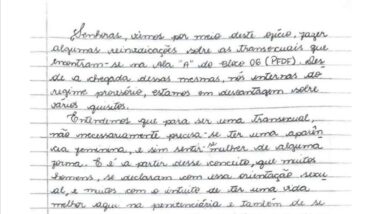 Senhoras, vimos por meio deste ofício, fazer
algumas reinvidicações sobre as transexuais que
encontram-se na Ala "A" do Bloco 06 (PFDF). Des
de a chegada dessas mesmas, nós internas do
regime provisório, estamos em desvantagem sobre
vários quisitos.
Entendemos que para ser uma transexual,
não necessariamente precisa-se ter uma aparên
cia feminina, e sim sentir mulher de alguma
forma. E é a partir desse conceito, que muitos
homens, se declaram com essa orientação sexu
al, e muitos com o intuito de ter uma vida
melhor aqui na penitenciária e também de se